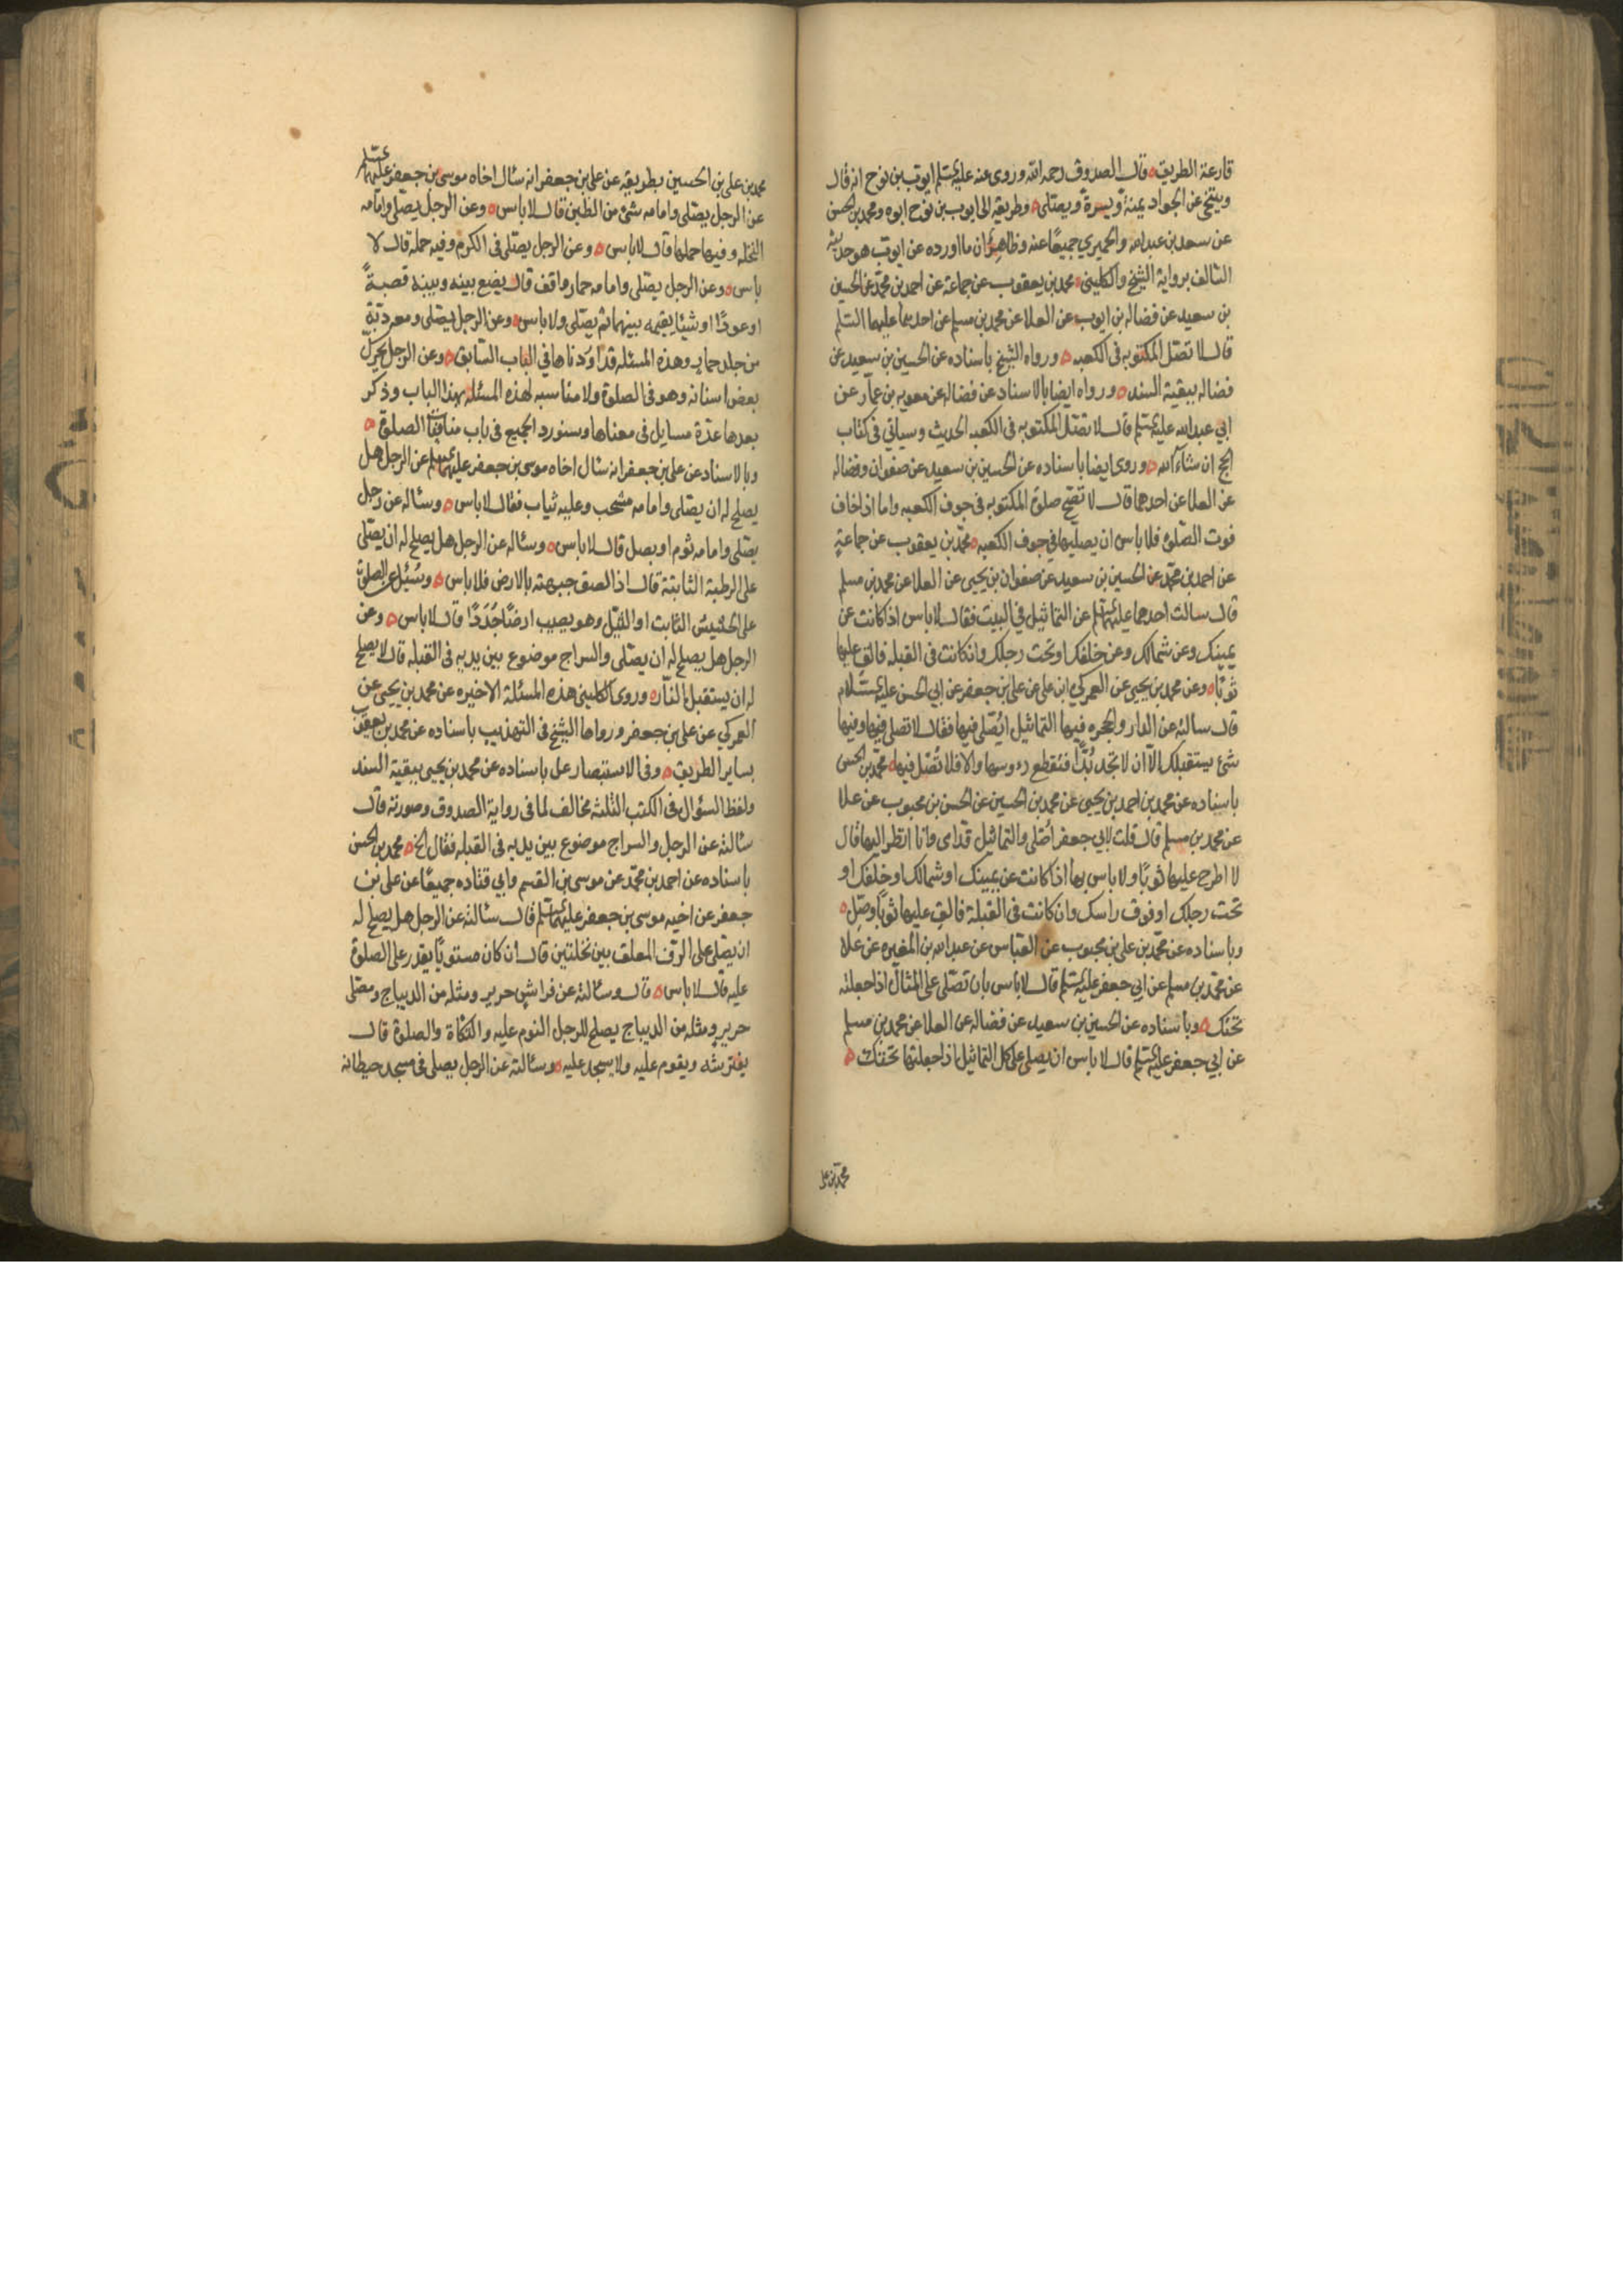 قارعة الطريق ه قال الصدوق رحمه الله وروى عنه عليه السلم ايوب بن نوح انه قال
ويتنحى عن الجواد يمنة ويسرة ويصلى ه وطريقه الى ايوب بن نوح ابوه ومحمد بن الحسن
عن سعد بن عبد الله والحميري جميعًا عنه وظاهر ان ما اورده عن ايوب هو حديثه
السالف برواية الشيخ والكليني ه محمد بن يعقوب عن جماعة عن احمد بن محمد عن الحسين
بن سعيد عن فضاله بن ايوب عن العلا عن محمد بن مسلم عن احدهما عليهما السلم
قال لا تصل المكتوبه فى الكعبه ه ورواه الشيخ باسناده عن الحسين بن سعيد عن
فضاله ببقية السند ه ورواه ايضا بالاسناد عن فضاله عن معويه بن عمار عن
ابي عبد الله عليه السلم قال لا تصل المكتوبه فى الكعبه الحديث وسياتي فى كتاب
الحج ان شآء الله ه وروى ايضا باسناده عن الحسين بن سعيد عن صفوان وفضاله
عن العلا عن احدهما قال لا تصح صلوة المكتوبه فى جوف الكعبه واما اذا خاف
فوت الصلوة فلا باس ان يصليها في جوف الكعبه ه محمد بن يعقوب عن جماعة
عن احمد بن محمد عن الحسين بن سعيد عن صفوان بن يحيى عن العلا عن محمد بن مسلم
قال سالت احدهما عليهما السلم عن التماثيل في البيت فقال لا باس اذا كانت عن
يمينك وعن شمالك وعن خلفك او تحت رجلك وان كانت فى القبله فالق عليها
ثوبًا ه وعن محمد بن يحيى عن العمركي ابن على عن على بن جعفر عن ابي الحسن عليه السلام
قال سالته عن الدار والحجره فيها التماثيل ايُصلى فيها فقال لا تصلى فيها وفيها
شئ يستقبلك الآ ان لا تجد بُدًّا فتقطع رءوسها والا فلا تُصَل فيها ه محمد بن الحسن
باسناده عن محمد بن احمد بن يحيى عن محمد بن الحسين عن الحسن بن محبوب عن علا
عن محمد بن مسلم قال قلت لابي جعفر اُصلى والتماثيل قدامى وانا انظر اليها قال
لا اطرح عليها ثوبًا ولا باس بها اذا كانت عن يمينك او شمالك او خلفك او
تحت رجلك او فوق راسك وان كانت فى القبلة فالق عليها ثوبًا وصَلِ ه
وباسناده عن محمد بن على بن محبوب عن العباس عن عبد الله بن المغيره عن علا
عن محمد بن مسلم عن ابي جعفر عليه السلم قال لا باس بان تصلى على المثال اذا جعلته
تحتك ه وباسناده عن الحسين بن سعيد عن فضاله عن العلا عن محمد بن مسلم
عن ابي جعفر عليه السلم قال لا باس ان يصلى على كل التماثيل اذا جعلتها تحتك ه
محمد بن على
محمد بن على بن الحسين بطريقه عن على بن جعفر انه سئال اخاه موسى بن جعفر عليهما السلم
عن الرجل يصلى وامامه شئ من الطين قال لا باس ه وعن الرجل يصلى وامامه
النخله وفيها حملها قال لا باس ه وعن الرجل يصلى فى الكرم وفيه حمله قال لا
باس ه وعن الرجل يصلى وامامه حمار واقف قال يضع بينه وبينه قصبةً
او عودًا او شيئا يقيمه بينهما ثم يصلى ولا باس ه وعن الرجل يصلى ومعه دبة
من جلد حمار وهذه المسئله قد اوردناها في الباب السابق ه وعن الرجل يحرك
بعض اسنانه وهو فى الصلوة ولا مناسبه لهذه المسئله بهذا الباب وذكر
بعدها عدة مسايل فى معناها وسنورد الجميع فى باب منافيات الصلوة ه
وبالاسناد عن على بن جعفر انه سئال اخاه موسى بن جعفر عليهما السلم عن الرجل هل
يصلح له ان يصلى وامامه مشجب وعليه ثياب فقال لا باس ه وسئاله عن رجل
يصلى وامامه ثوم او بصل قال لا باس ه وسئاله عن الرجل هل يصلح له ان يصلى
على الرطبة الثابتة قال اذا الصق جبهته بالارض فلا باس ه وسُئِل عن الصلوة
على الحشيش الثابت او الثيل وهو يصيب ارضًا جَدَدًا قال لا باس ه وعن
الرجل هل يصلح له ان يصلى والسراج موضوع بين يديه فى القبله قال لا يصلح
له ان يستقبل النار ه وروى الكليني هذه المسئلة الاخيره عن محمد بن يحيى عن
العمركي عن على بن جعفر ورواها الشيخ فى التهذيب باسناده عن محمد بن يعقوب
بساير الطريق ه وفى الاستبصار عل باسناده عن محمد بن يحيى ببقية السند
ولفظ السؤال فى الكتب الثلثه مخالف لما فى رواية الصدوق وصورته قال
سئالته عن الرجل والسراج موضوع بين يديه فى القبله فقال الخ ه محمد بن الحسن
باسناده عن احمد بن محمد عن موسى بن القسم وابي قتاده جميعًا عن على بن
جعفر عن اخيه موسى بن جعفر عليهما السلم قال سئالته عن الرجل هل يصلح له
ان يصلى على الرّف المعلق بين نخلتين قال ان كان مستويًا يقدر على الصلوة
عليه قال لا باس ه قال وسئالته عن فراش حرير ومثله من الديباج ومصلى
حرير ومثله من الديباج يصلح للرجل النوم عليه والتكاة والصلوة قال
يفترشه ويقوم عليه ولا يسجد عليه ه وسئالته عن الرجل يصلى فى مسجد حيطانه